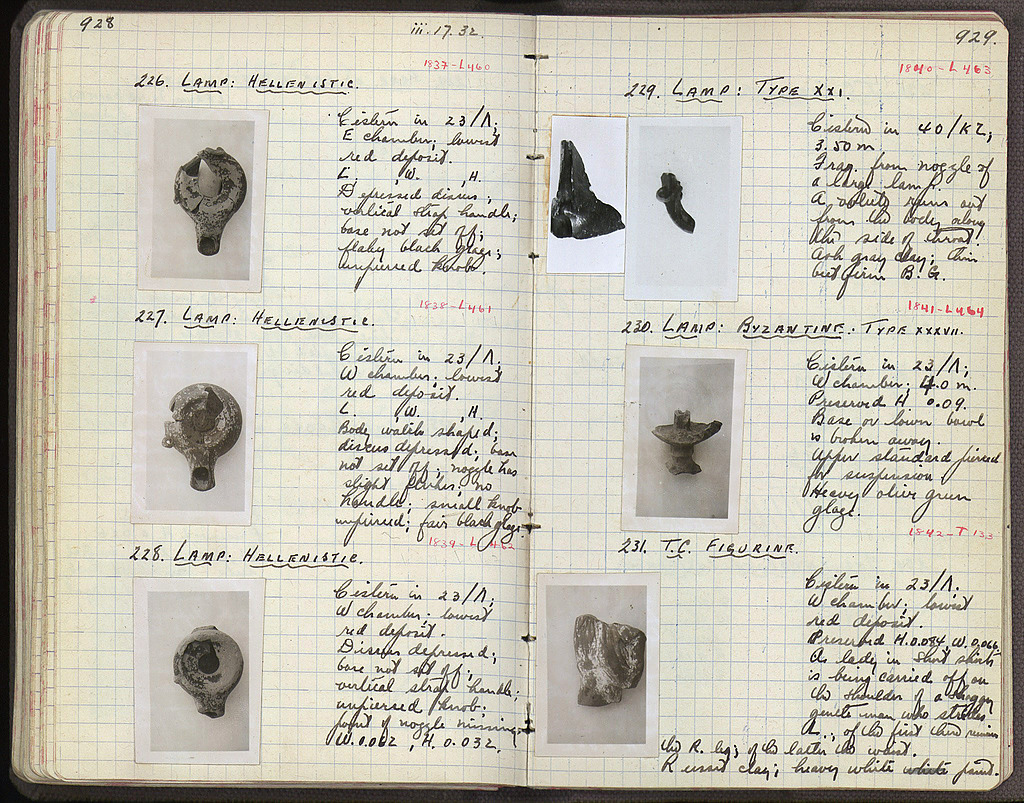 928
iii.17.32.
1837-L460
226. LAMP: HELLENISTIC.
Cistern in 23/Λ;
E chamber; lowest
red deposit.
L. , W. , H.
Depressed discus;
vertical strap handle;
base not set off;
flaky black glaze;
unpierced knob.
1838-L461
227. LAMP: HELLENISTIC.
Cistern in 23/Λ;
W chamber; lowest
red deposit.
L. W. , H.
Body watch shaped;
discus depressed; base
not set off; nozzle has
slight flukes; no
handle; small knob
unpierced; fair black glaze.
1839-L462
228. LAMP: HELLENISTIC.
Cistern in 23/Λ;
W chamber; lowest
red deposit.
Discus depressed;
base not set off;
vertical strap handle;
unpierced knob;
point of nozzle missing.
W. 0.062, H. 0.032.
929.
1840-L463
229. LAMP: TYPE XXI.
Cistern in 40/ΚΖ;
3.50 m
Frag. from nozzle of
a large lamp.
A volute runs out
from the body along
the side of throat.
Ash gray clay; thin
but firm B.G.
1841-L464
230. LAMP: BYZANTINE: TYPE XXXVII.
Cistern in 23/Λ;
W chamber; 4.0 m.
Preserved H 0.09.
Base or lower bowl
is broken away.
Upper standard pierced
for suspension
Heavy olive green
glaze.
1842-T133
231. T.C. FIGURINE.
Cistern in 23/Λ.
W chamber; lowest
red deposit.
Preserved H. 0.084, W. 0.066
A lady in short skirts
is being carried off on
the shoulder of a shaggy
gentleman who strides
R., of the first there remains
the R. leg; of the latter the waist.
Reused clay; heavy white white paint.